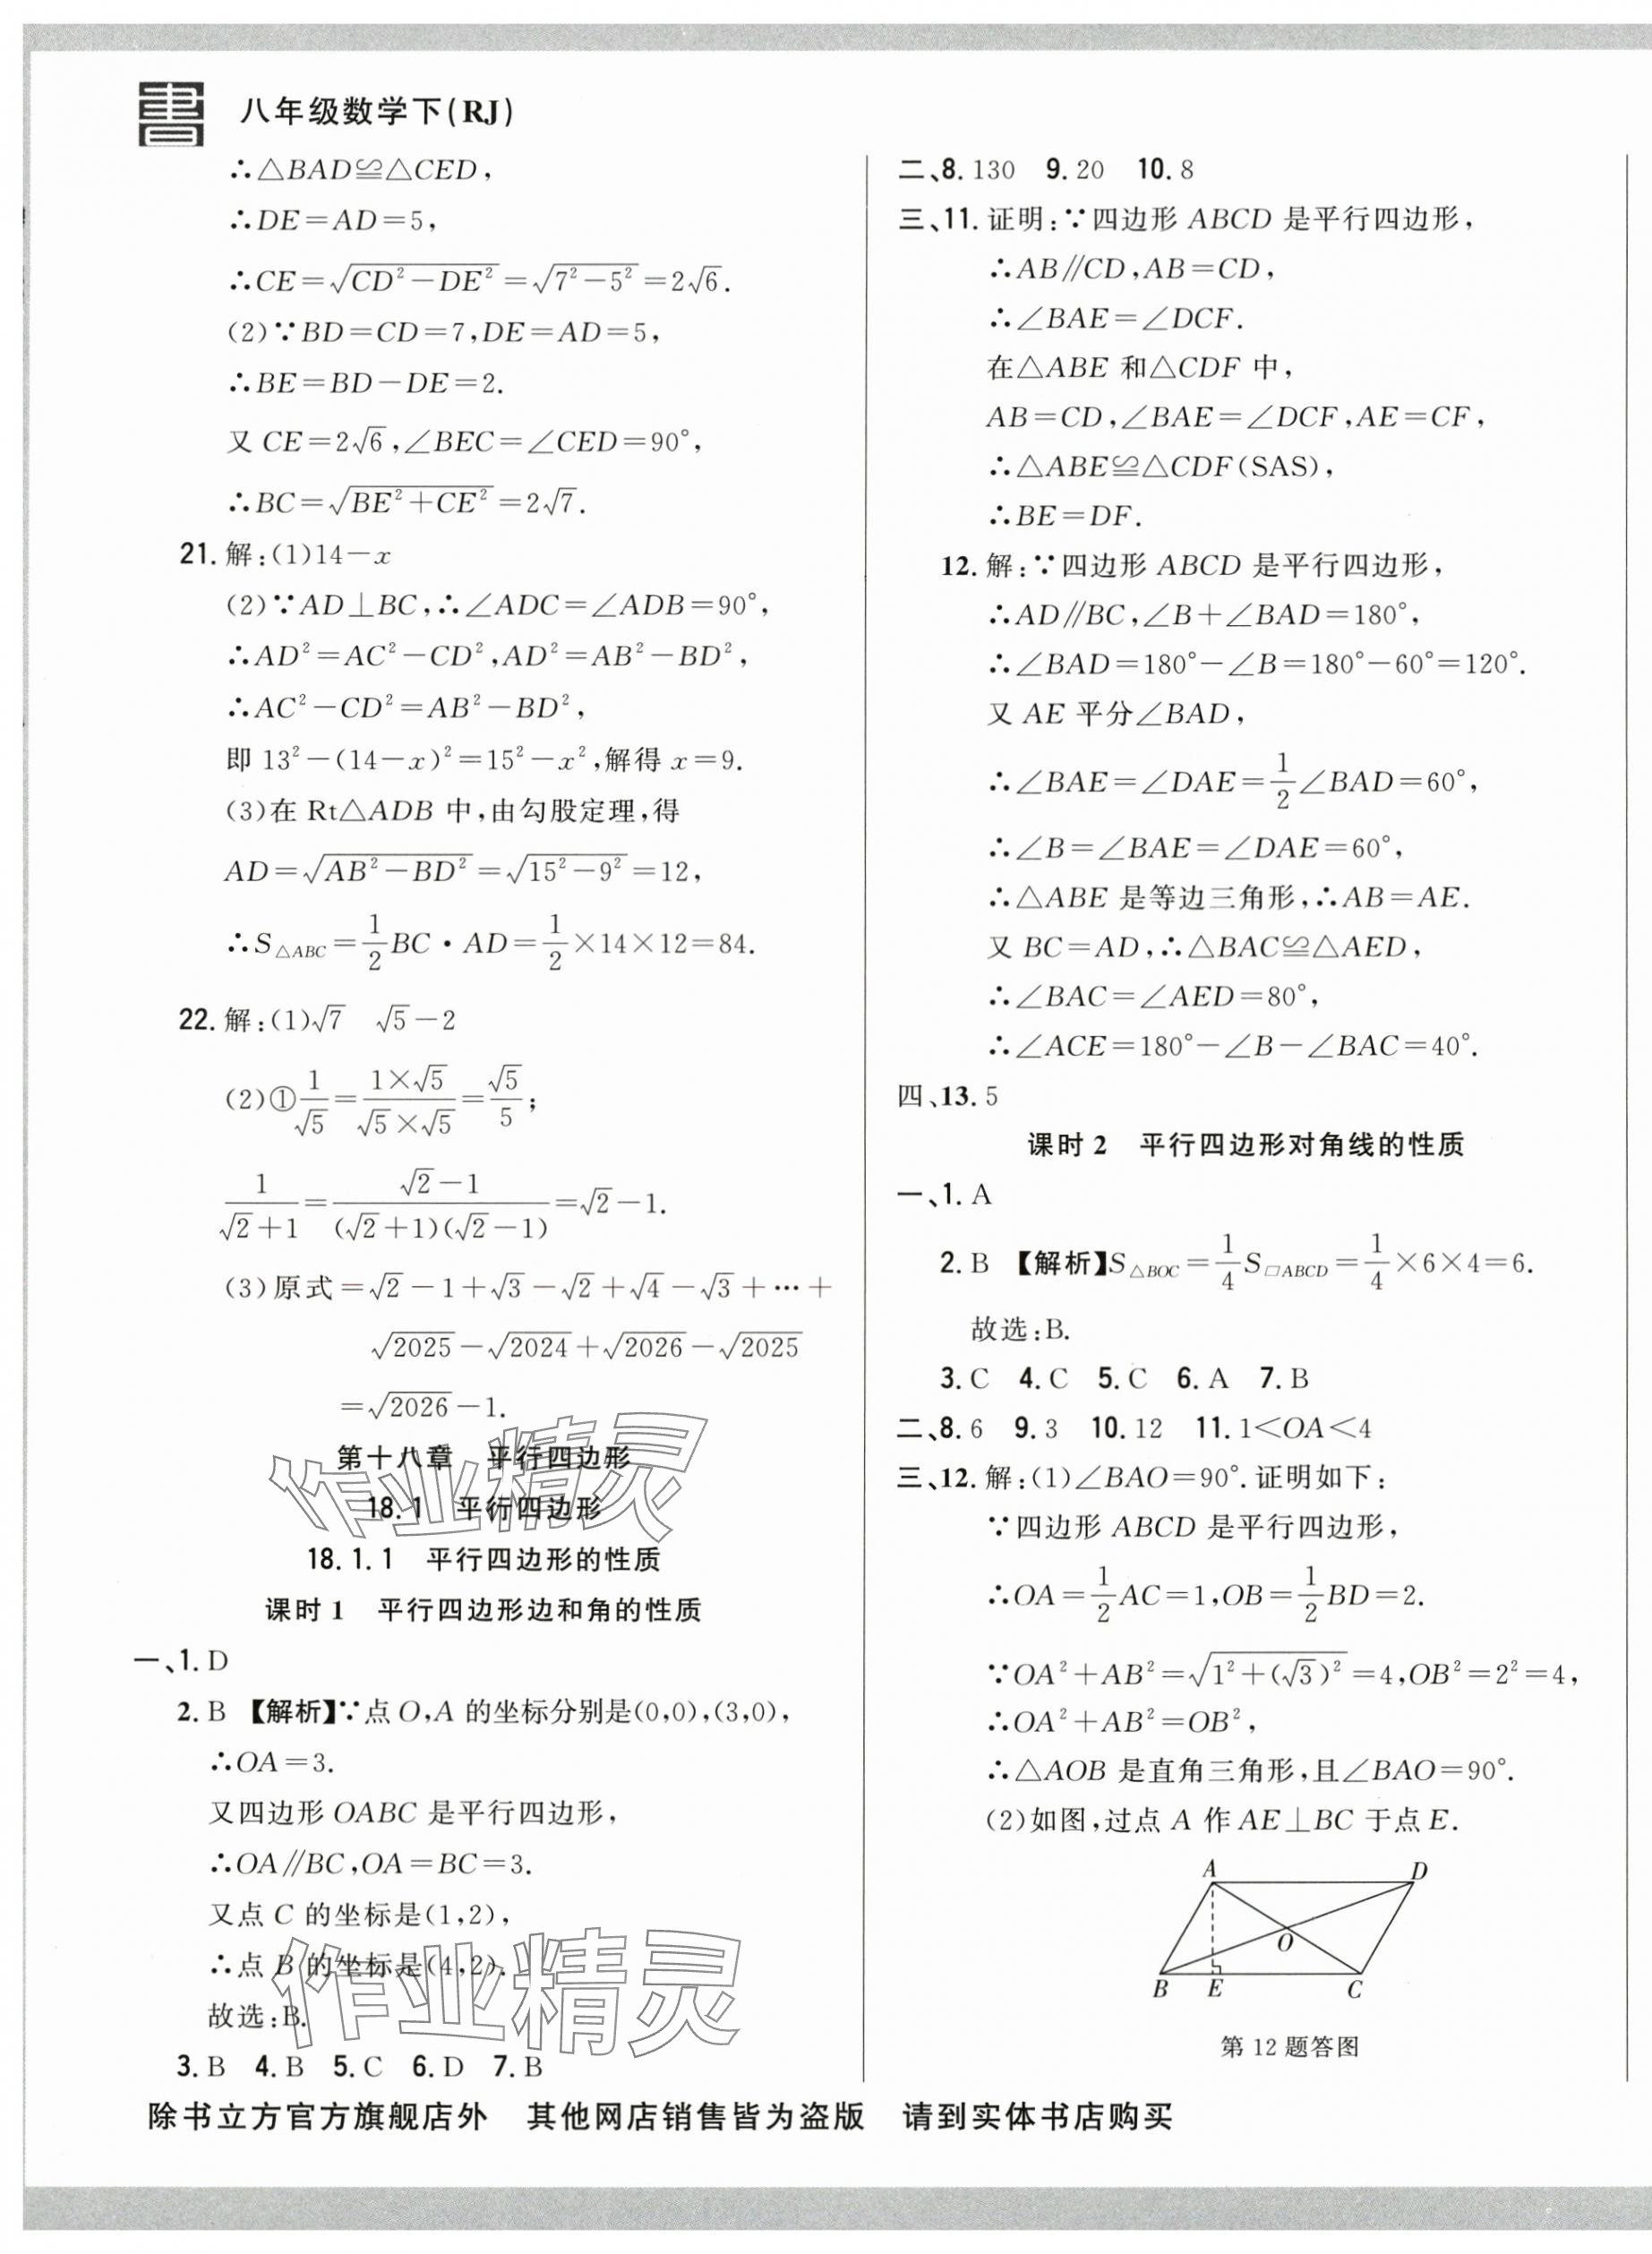 書 八年级数学下(RJ)
∴△BAD≌△CED,
∴DE=AD=5,
∴CE=√(CD²-DE²)=√(7²-5²)=2√6.
(2)∵BD=CD=7,DE=AD=5,
∴BE=BD-DE=2.
又 CE=2√6,∠BEC=∠CED=90°,
∴BC=√(BE²+CE²)=2√7.
21. 解:(1)14-x
(2)∵AD⊥BC,∴∠ADC=∠ADB=90°,
∴AD²=AC²-CD²,AD²=AB²-BD²,
∴AC²-CD²=AB²-BD²,
即 13²-(14-x)²=15²-x²,解得 x=9.
(3)在 Rt△ADB 中,由勾股定理,得
AD=√(AB²-BD²)=√(15²-9²)=12,
∴S△ABC=1/2 BC·AD=1/2×14×12=84.
22. 解:(1)√7 √5-2
(2)①1/√5=(1×√5)/(√5×√5)=√5/5;
1/(√2+1)=(√2-1)/((√2+1)(√2-1))=√2-1.
(3)原式=√2-1+√3-√2+√4-√3+…+
√2025-√2024+√2026-√2025
=√2026-1.
第十八章 平行四边形
18.1 平行四边形
18.1.1 平行四边形的性质
课时 1 平行四边形边和角的性质
一、1. D
2. B 【解析】∵点 O,A 的坐标分别是(0,0),(3,0),
∴OA=3.
又四边形 OABC 是平行四边形,
∴OA∥BC,OA=BC=3.
又点 C 的坐标是(1,2),
∴点 B 的坐标是(4,2).
故选:B.
3. B 4. B 5. C 6. D 7. B
二、8. 130 9. 20 10. 8
三、11. 证明:∵四边形 ABCD 是平行四边形,
∴AB∥CD,AB=CD,
∴∠BAE=∠DCF.
在△ABE 和△CDF 中,
AB=CD,∠BAE=∠DCF,AE=CF,
∴△ABE≌△CDF(SAS),
∴BE=DF.
12. 解:∵四边形 ABCD 是平行四边形,
∴AD∥BC,∠B+∠BAD=180°,
∴∠BAD=180°-∠B=180°-60°=120°.
又 AE 平分∠BAD,
∴∠BAE=∠DAE=1/2∠BAD=60°,
∴∠B=∠BAE=∠DAE=60°,
∴△ABE 是等边三角形,∴AB=AE.
又 BC=AD,∴△BAC≌△AED,
∴∠BAC=∠AED=80°,
∴∠ACE=180°-∠B-∠BAC=40°.
四、13. 5
课时 2 平行四边形对角线的性质
一、1. A
2. B 【解析】S△BOC=1/4 S▱ABCD=1/4×6×4=6.
故选:B.
3. C 4. C 5. C 6. A 7. B
二、8. 6 9. 3 10. 12 11. 1<OA<4
三、12. 解:(1)∠BAO=90°.证明如下:
∵四边形 ABCD 是平行四边形,
∴OA=1/2 AC=1,OB=1/2 BD=2.
∵OA²+AB²=√(1²+(√3)²)=4,OB²=2²=4,
∴OA²+AB²=OB²,
∴△AOB 是直角三角形,且∠BAO=90°.
(2)如图,过点 A 作 AE⊥BC 于点 E.
A D
O
B E C
第 12 题答图
作业精灵
作业精灵
除书立方官方旗舰店外 其他网店销售皆为盗版 请到实体书店购买